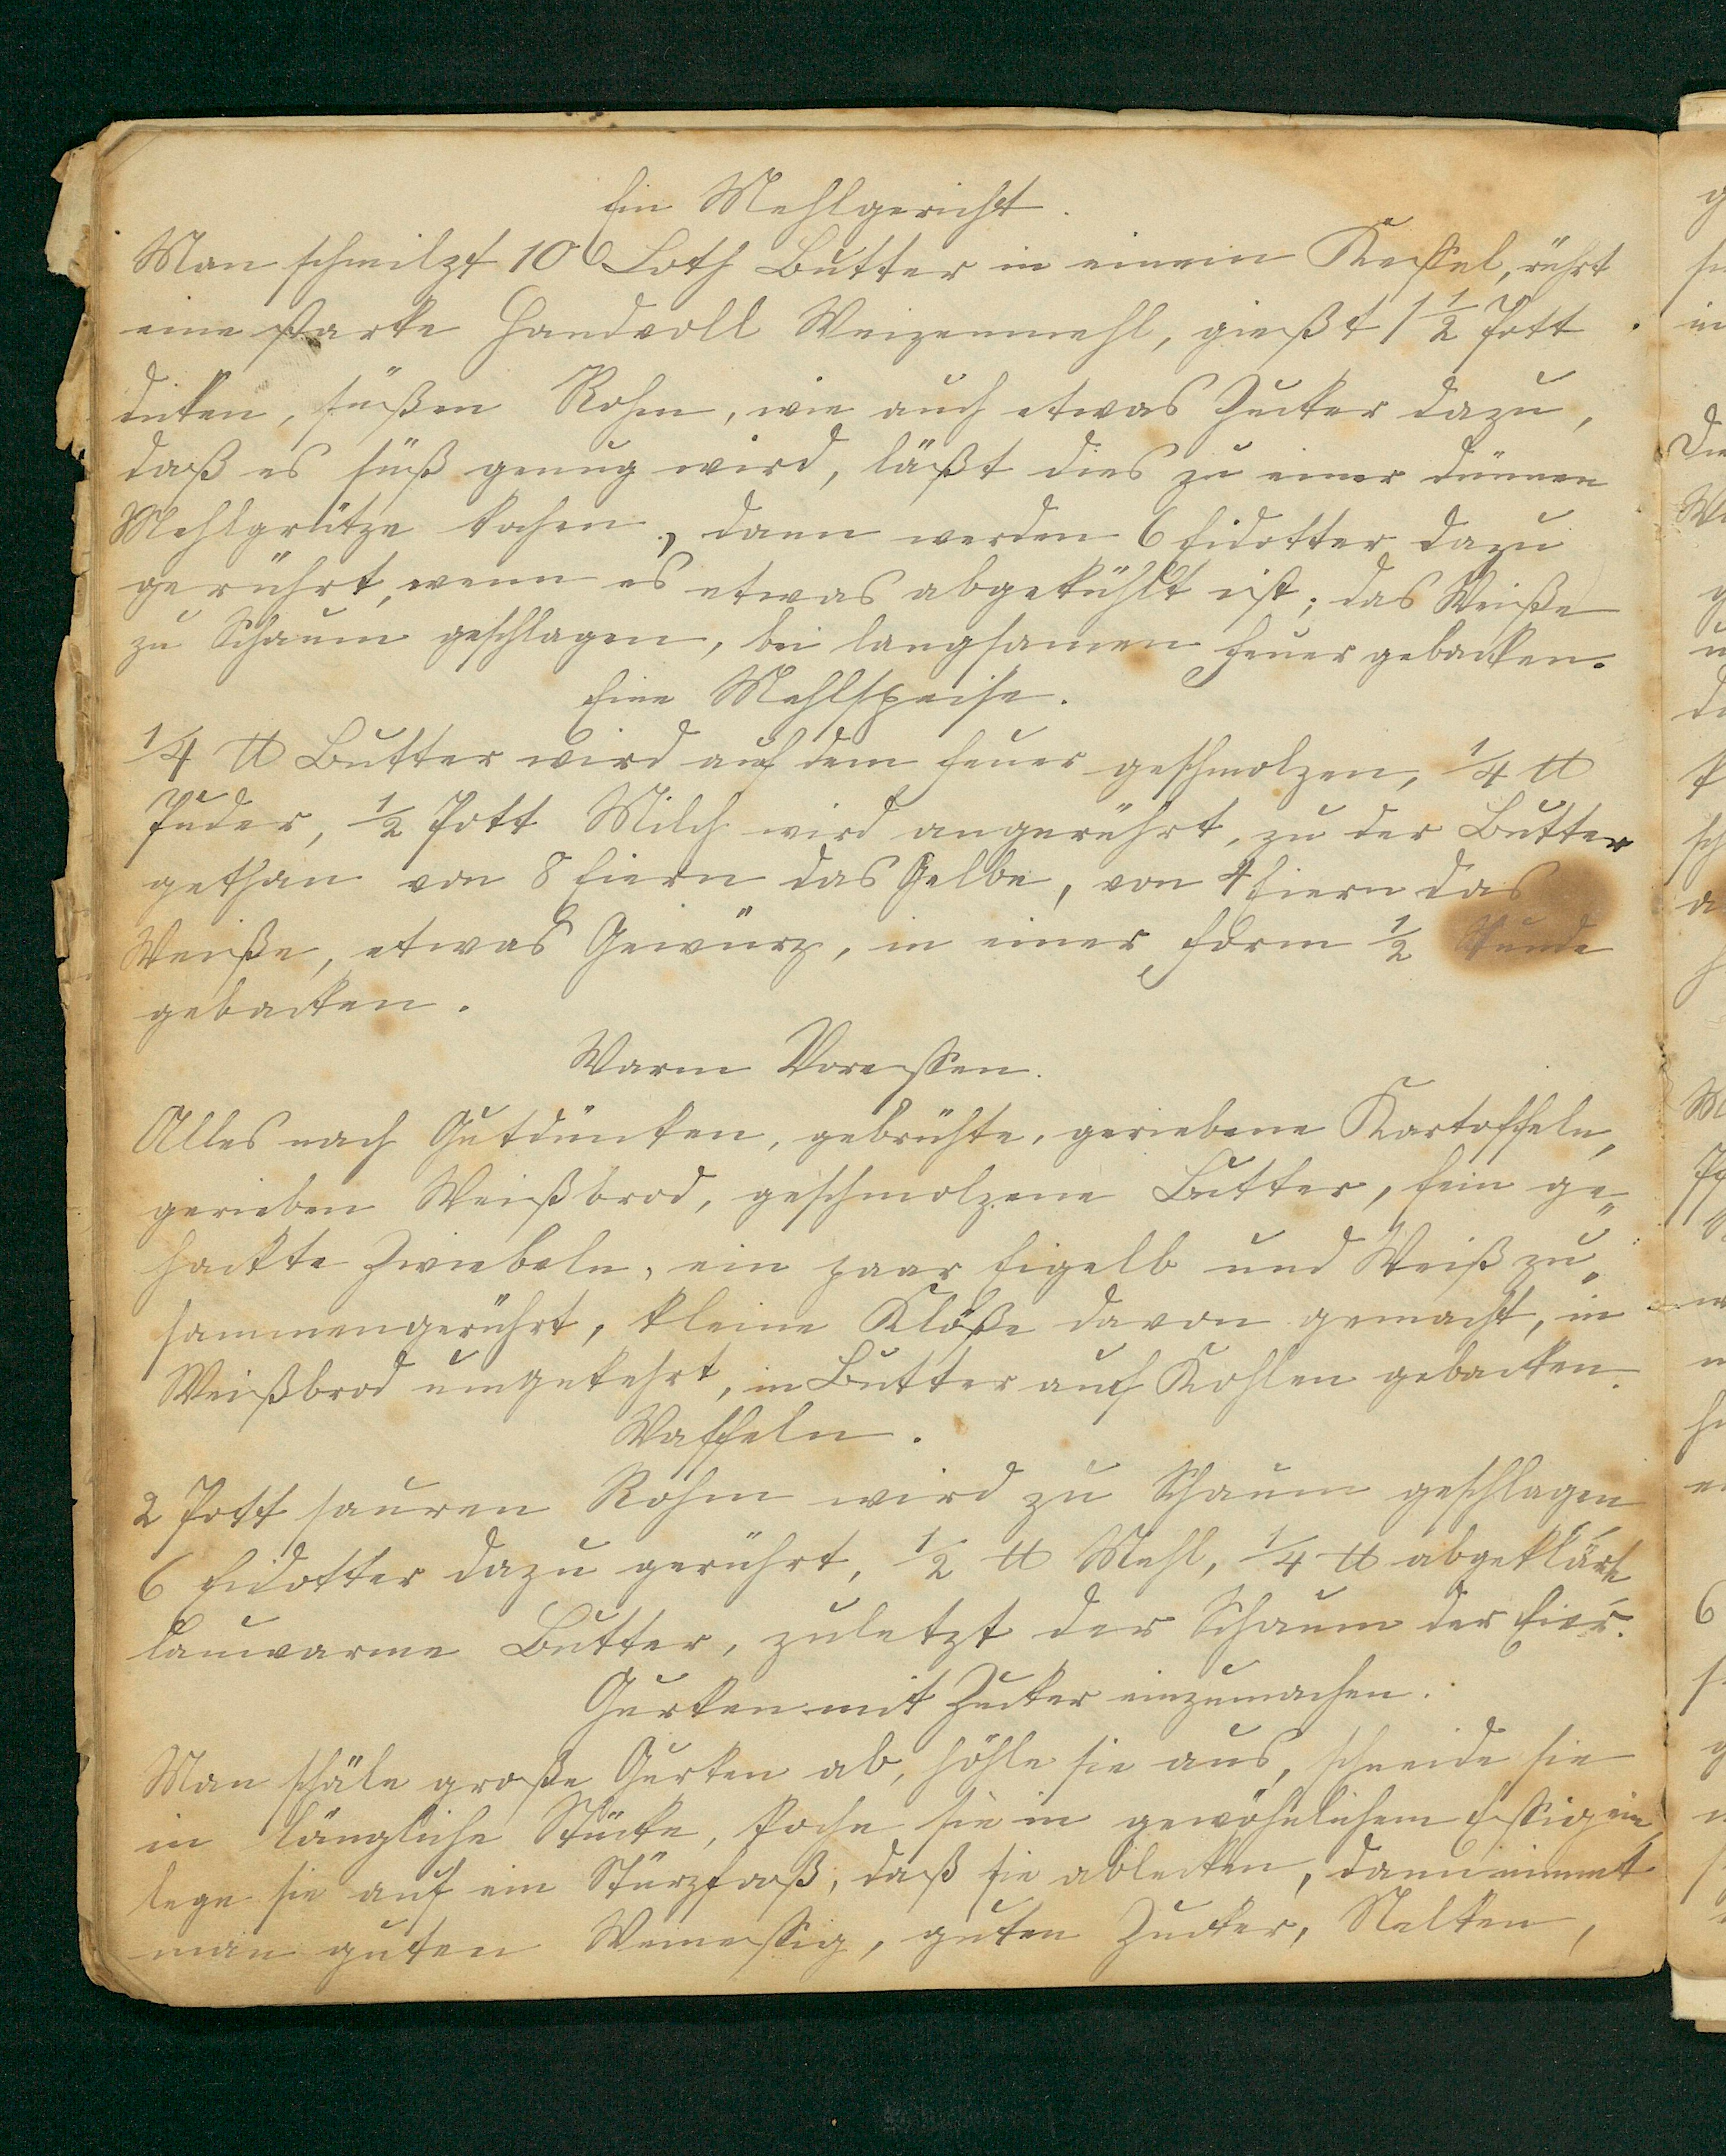 Ein Mehlgericht.
Man schmilzt 10 Loth Butter in einem Kessel, rührt
eine starke Handvoll Weizenmehl, gießt 1 1/2 Pott
dicken, süßen Rohm, wie auch etwas Zucker dazu,
daß es süß genug wird, läßt dies zu einer dünnen
Mehlgrütze kochen, dann werden 6 Eidotter dazu
gerührt, wenn es etwas abgekühlt ist; das Weiße
zu Schaum geschlagen, bei langsamen Feuer gebacken.
Eine Mehlspeise.
1/4 ℔ Butter wird auf dem Feuer geschmolzen, 1/4 ℔
Puder, 1/2 Pott Milch wird angerührt, zu der Butter
gethan von 8 Eiern das Gelbe, von 4 Eiern das
Weiße, etwas Gewürz, in einer Form 1/2 Stunde
gebacken.
Warm Voressen.
Alles nach Gutdünken, gebrühte, geriebene Kartoffeln,
gerieben Weißbrod, geschmolzene Butter, fein ge„
hackte Zwiebeln, ein paar Eigelb und Weiß zu„
sammengerührt, kleine Klöße davon gemacht, in
Weißbrod umgekehrt, in Butter auf Kohlen gebacken.
Waffeln.
2 Pott sauren Rohm wird zu Schaum geschlagen
6 Eidotter dazu gerührt, 1/2 ℔ Mehl, 1/4 ℔ abgeklärte
lauwarme Butter, zuletzt der Schaum der Eier.
Gurken mit Zucker einzumachen.
Man schäle große Gurken ab, höhle sie aus, schneide sie
in längliche Stücke, koche sie in gewöhnlichem Essig ein,
lege sie auf ein Stürzfaß, daß sie ablecken, dann nimmt
man guten Weinessig, guten Zucker, Nelken,